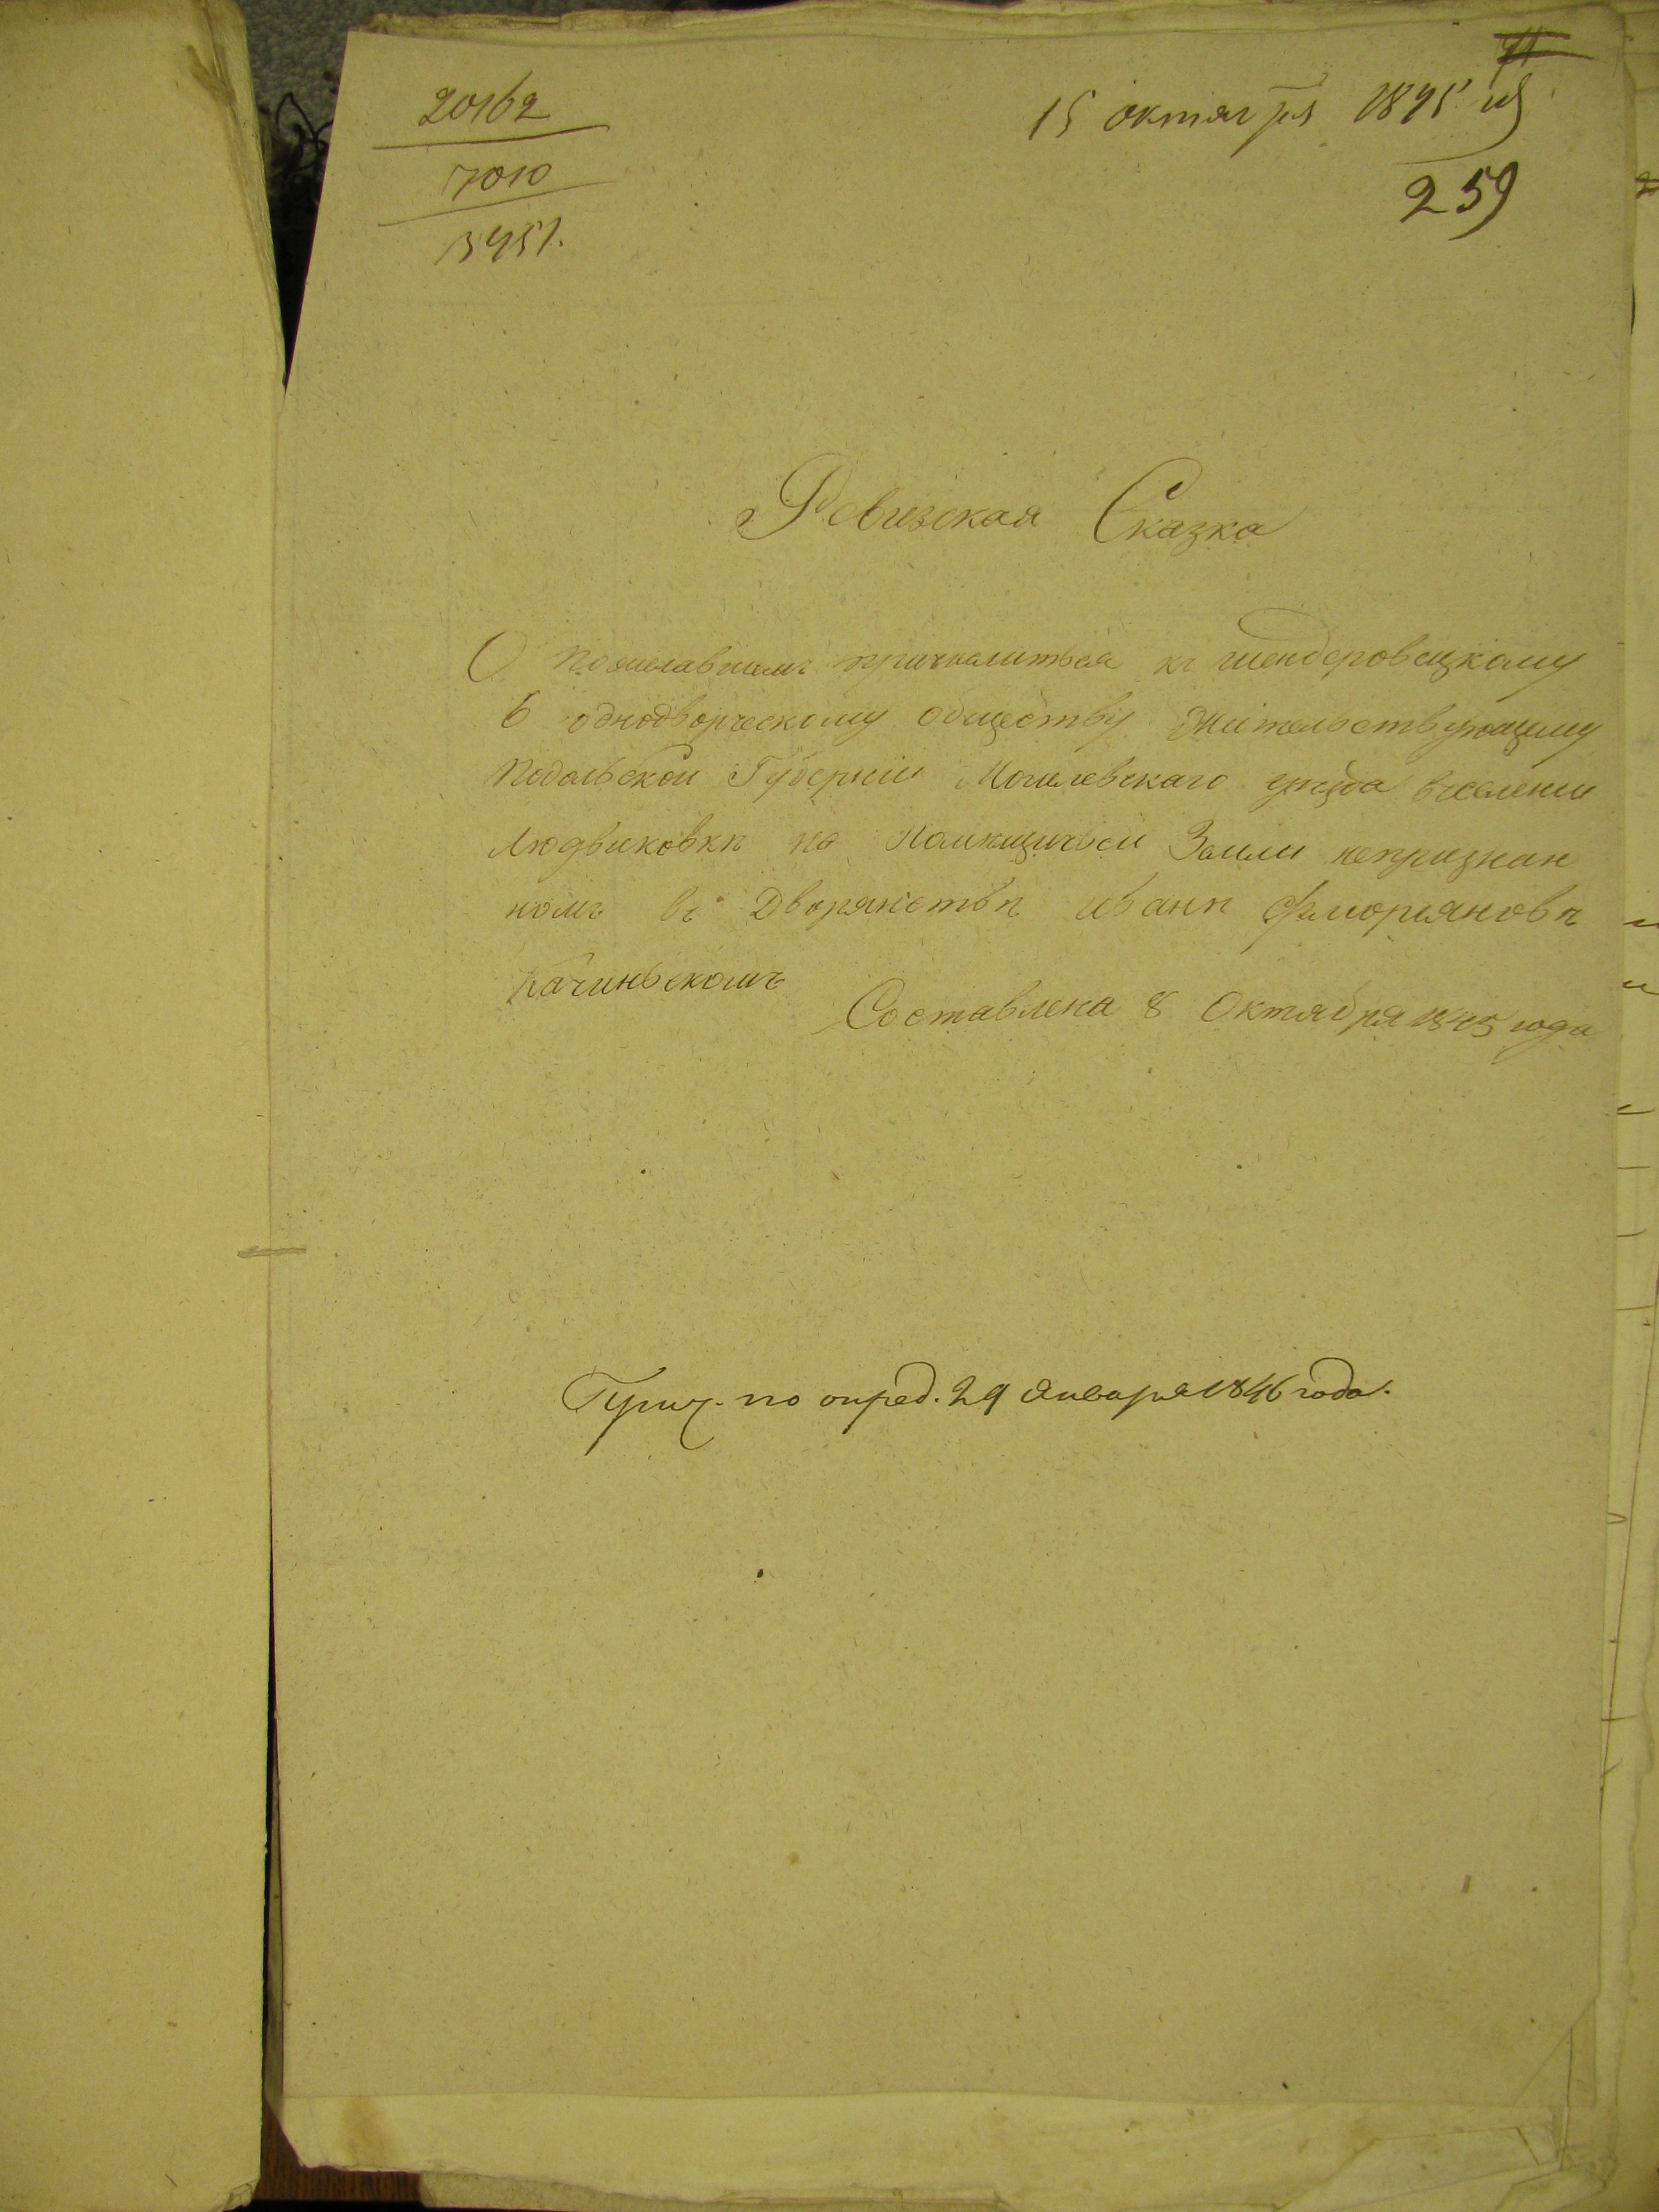 20162
7010
3451.
15 октября 1845
259
Ревизская Сказка
О пожелавшемъ причислиться къ шендеровецкому
6 однодворческому обществу жительствующему
Подольской Губернии Могилевскаго уезда вселении
Людвиковкѣ на Помѣщичьей Земли непризнан
номъ въ Дворянствѣ иванѣ Флориановѣ
Качиньскомъ
Составлена 8 Октября 1845 года
Прич. по опред. 29 Января 1846 года.